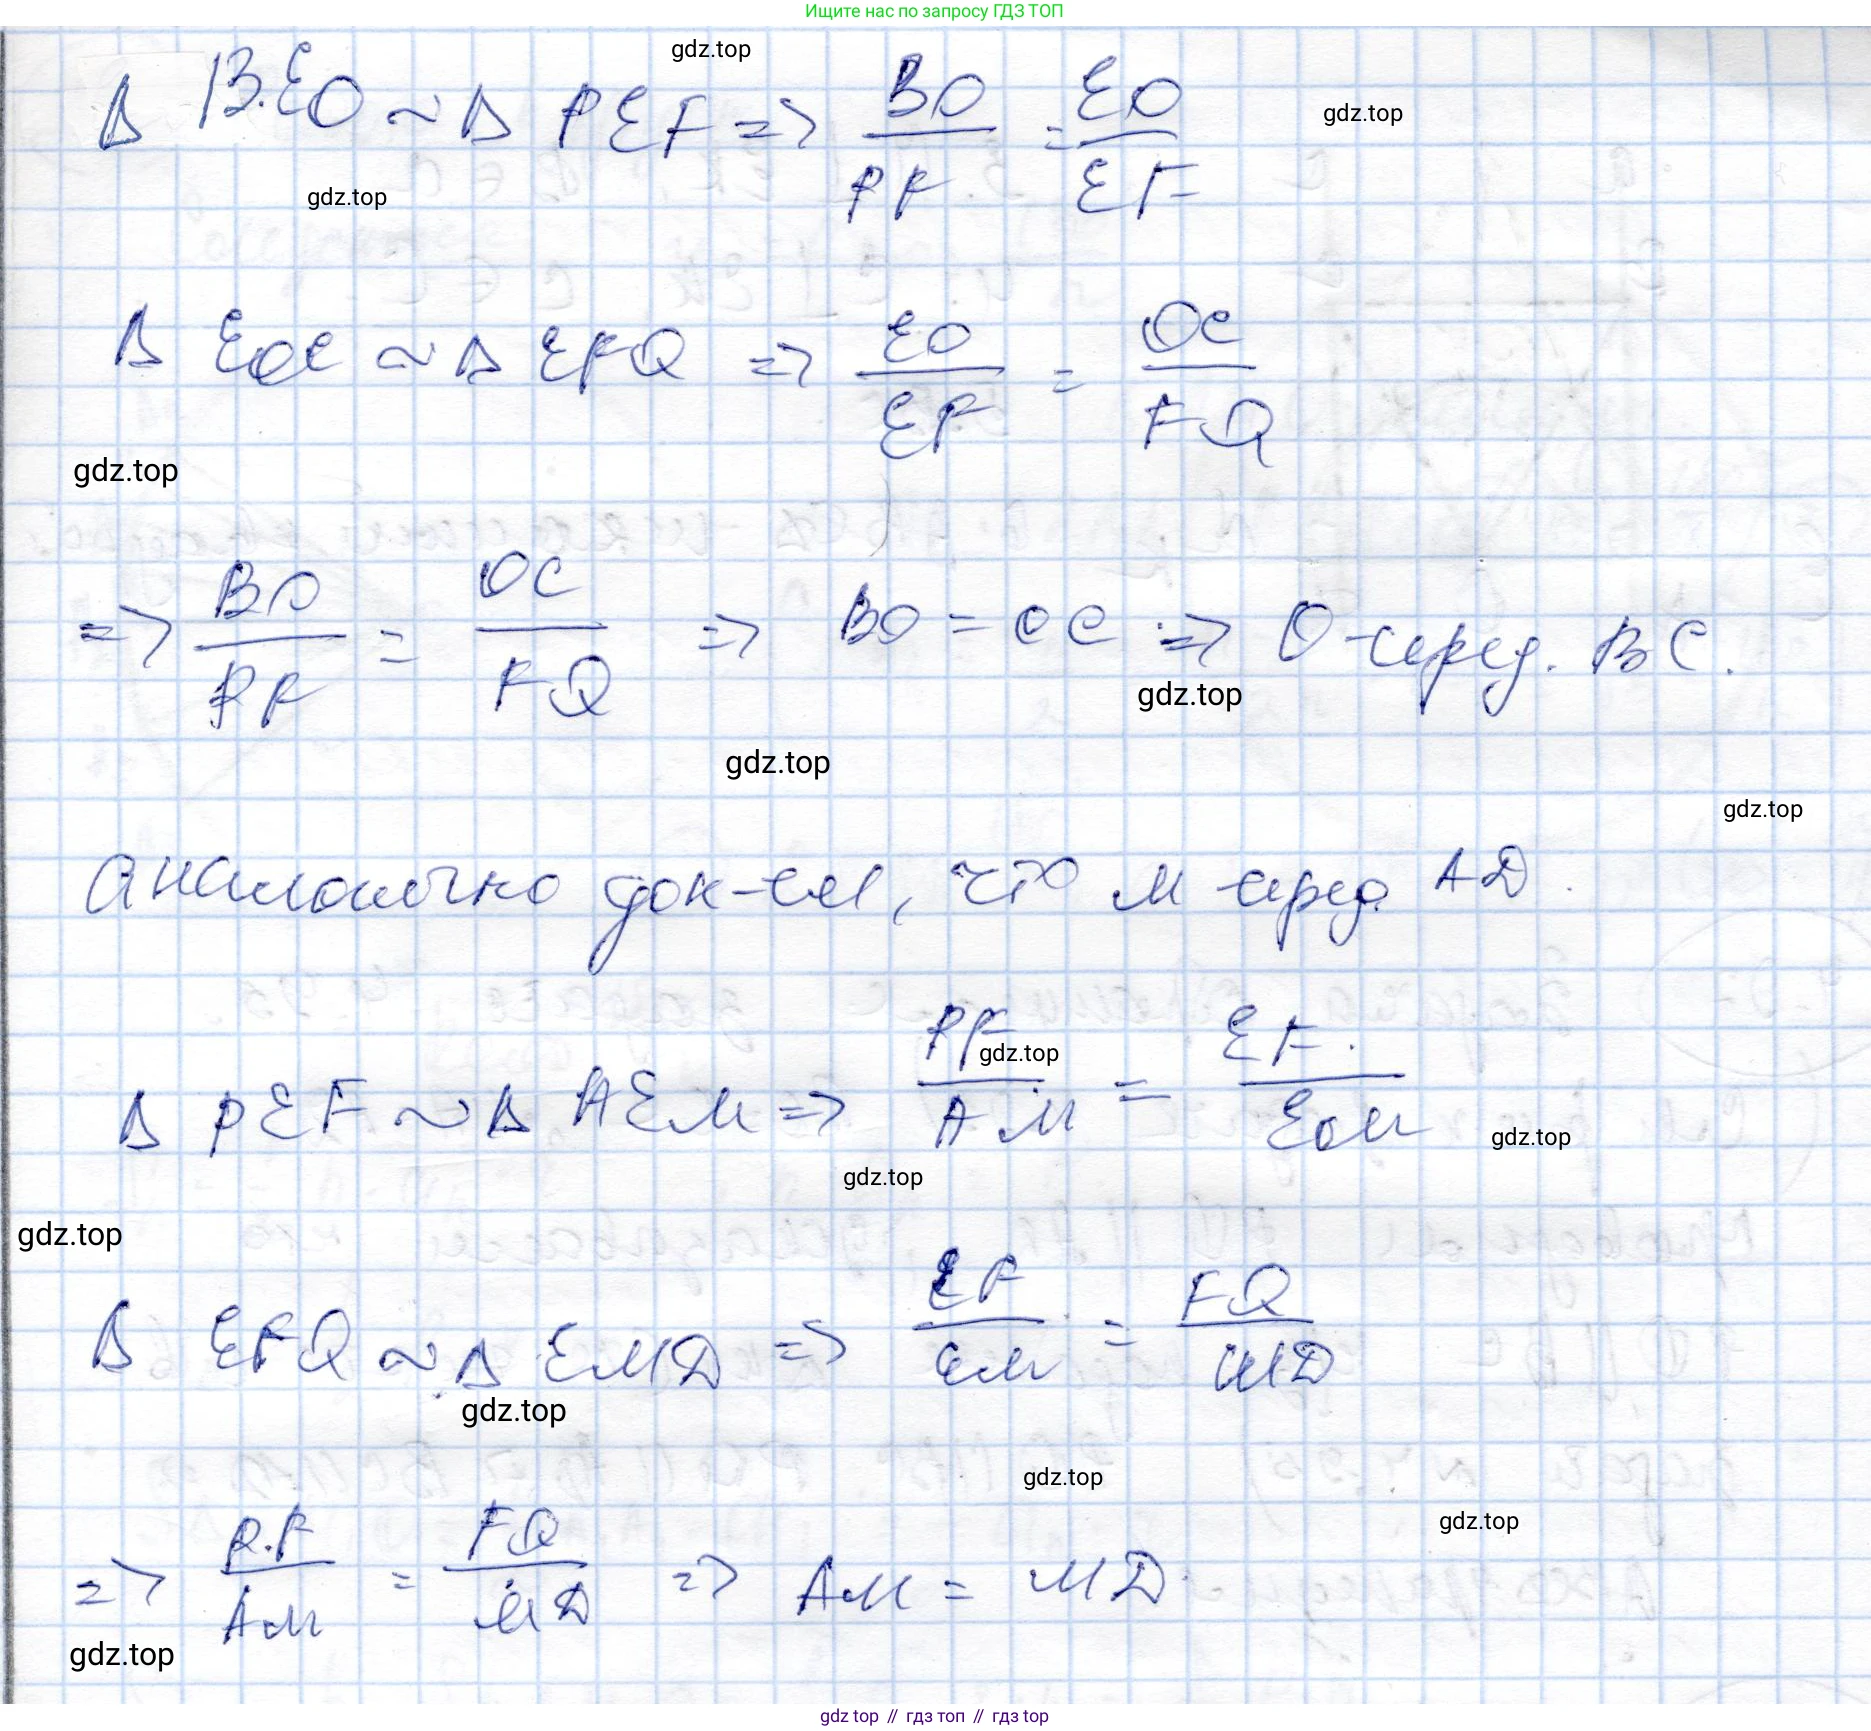 Ищите нас по запросу ГДЗ ТОП
gdz.top
Δ BEO ~ Δ PEF => BO/PF = EO/EF
gdz.top
gdz.top
Δ EOC ~ Δ EFQ => EO/EF = OC/FQ
gdz.top
=> BO/PF = OC/FQ => BO = OC => O - серед. BC.
gdz.top
gdz.top
gdz.top
Аналогично док-ем, что M - серед. AD.
Δ PEF ~ Δ AEM => PF/AM = EF/EM
gdz.top
gdz.top
gdz.top
gdz.top
Δ EFQ ~ Δ EMD => EF/EM = FQ/MD
gdz.top
gdz.top
gdz.top
=> PF/AM = FQ/MD => AM = MD
gdz.top
gdz top // гдз топ // гдз top